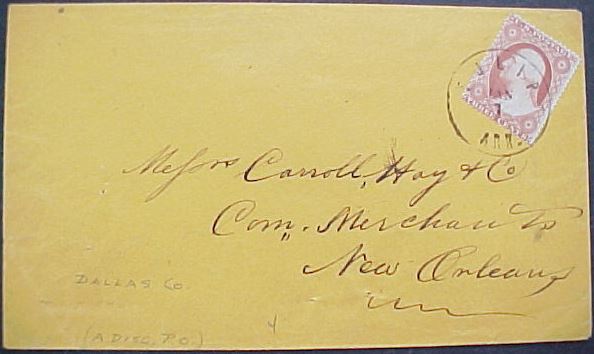 U.S. POSTAGE
THREE CENTS
ARK.
Messrs Carroll, Hoy & Co
Com. Merchants
New Orleans
DALLAS CO.
(A DISC. P.O.)